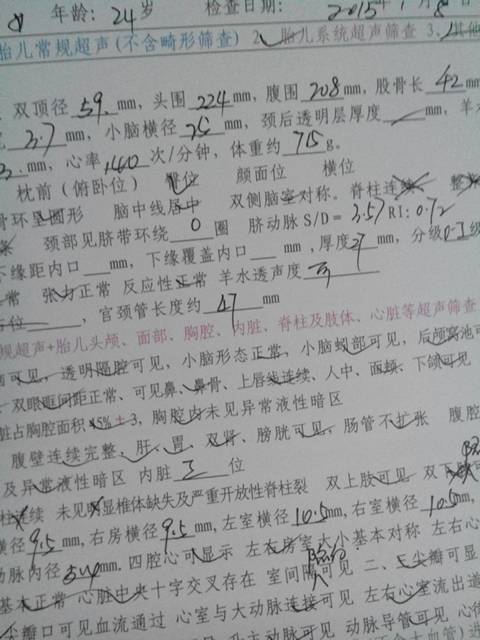 年龄: 24 岁 检查日期: 2015年1月8
胎儿常规超声(不含畸形筛查) 2、胎儿系统超声筛查 3、其他
双顶径 59 mm, 头围 224 mm, 腹围 208 mm, 股骨长 42 mm
3.7 mm, 小脑横径 25 mm, 颈后透明层厚度 mm, 羊水
mm, 心率 140 次/分钟, 体重约 715 g。
枕前(俯卧位) 臀位 颜面位 横位
骨环呈圆形 脑中线居中 双侧脑室对称。脊柱连续 整
颈部见脐带环绕 0 圈 脐动脉 S/D= 3.57 RI: 0.72
下缘距内口 mm, 下缘覆盖内口 mm, 厚度 27 mm, 分级 0-I 级
常 张力正常 反应性正常 羊水透声度 可
位 , 宫颈管长度约 47 mm
规超声+胎儿头颅、面部、胸腔、内脏、脊柱及肢体、心脏等超声筛查
可见, 透明隔腔可见, 小脑形态正常, 小脑蚓部可见, 后颅窝池可
双眼眶间距正常、可见鼻、鼻骨、上唇线连续、人中、面颊、下颌可见
脏占胸腔面积 45%±3, 胸腔内未见异常液性暗区
腹壁连续完整、肝、胃、双肾、膀胱可见, 肠管不扩张 腹腔
及异常液性暗区 内脏 正 位
柱连续 未见明显椎体缺失及严重开放性脊柱裂 双上肢可见 双下肢
横径 9.5 mm, 右房横径 9.5 mm, 左室横径 10.5 mm, 右室横径 10.5 mm,
动脉内径 mm. 四腔心可显示 左右房室大小基本对称 左右心
基本正常 心脏中央十字交叉存在 室间隔部分可见 二、三尖瓣可显
尖瓣口可见血流通过 心室与大动脉连接可见 左右心室流出道
主动脉可见 动脉导管可见